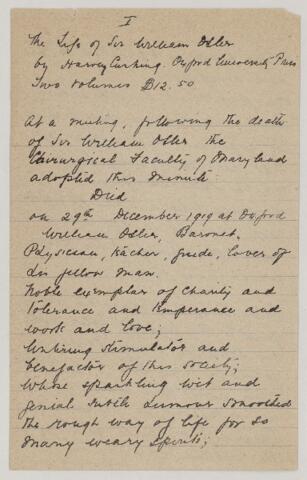 I
The Life of Sir William Osler
by Harvey Cushing. Oxford University Press
Two volumes $12.50
At a meeting, following the death
of Sir William Osler the
Chirurgical Faculty of Maryland
adopted this minute:
Died
on 29th December 1919 at Oxford
William Osler, Baronet,
Physician, teacher, guide, lover of
his fellow man.
Noble exemplar of Charity and
Tolerance and Temperance and
work and love;
Untiring stimulator and
benefactor of this society;
Whose sparkling wit and
genial subtle humour smoothed
the rough way of life for so
many weary spirits;